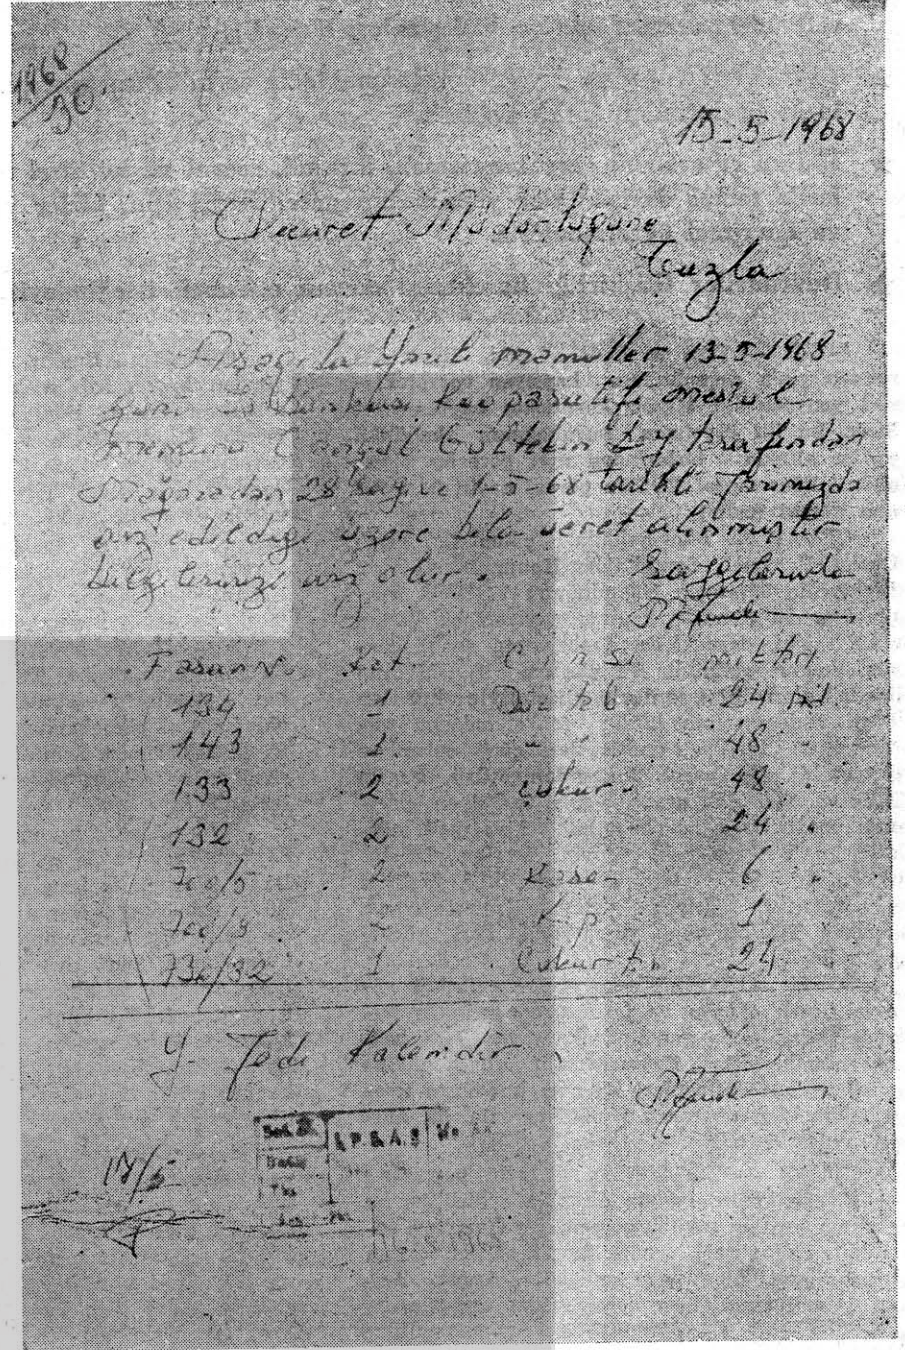 1968
30
15-5-1968
Ticaret Müdürlügüne
Tuzla
Aşağıda Yazılı mamuller 13-5-1968
günü İş Bankası Kooparatifi mesul
memuru Gültekin Bey tarafından
Mağazadan 28 sayılı 1-5-68 tarihli
arz edildiği üzere bila ücret alınmıştır
bilgilerinizi arz olur. Saygılarımla
Fasun No. Kat. Cinsi miktarı
134 1 Düz tab. 24 ad.
143 1. " " 48 "
133 2 çukur. 48 "
132 2 24 "
700/5 2 Kase 6 "
700/8 2 1
732/32 1 Çukur t. 24
Y. Yedi Kalemdir
17/5
16.5.1968